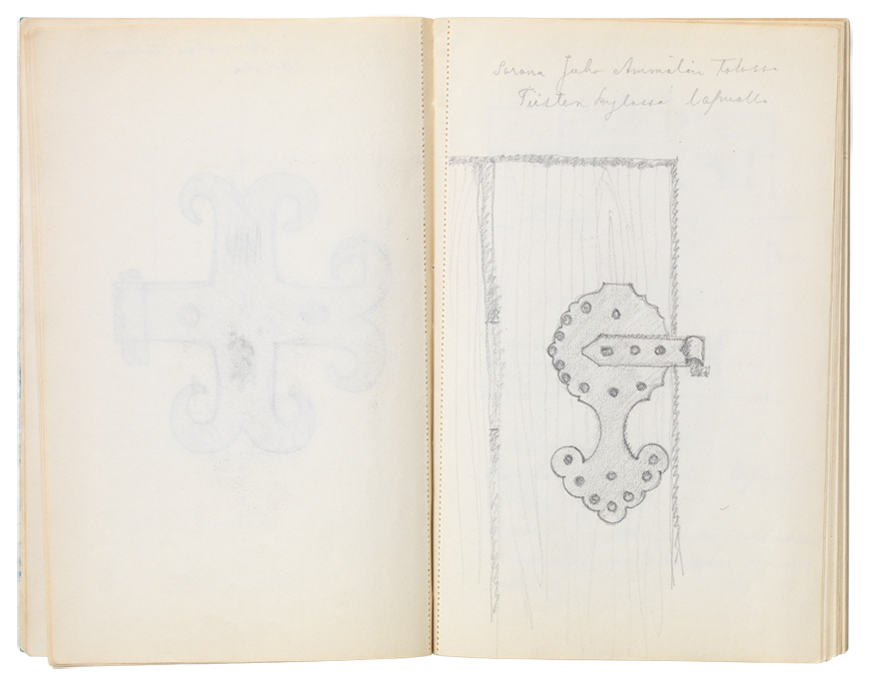 Sarana Juho Ammälän Talossa
Tiisten kylässä Lapualla